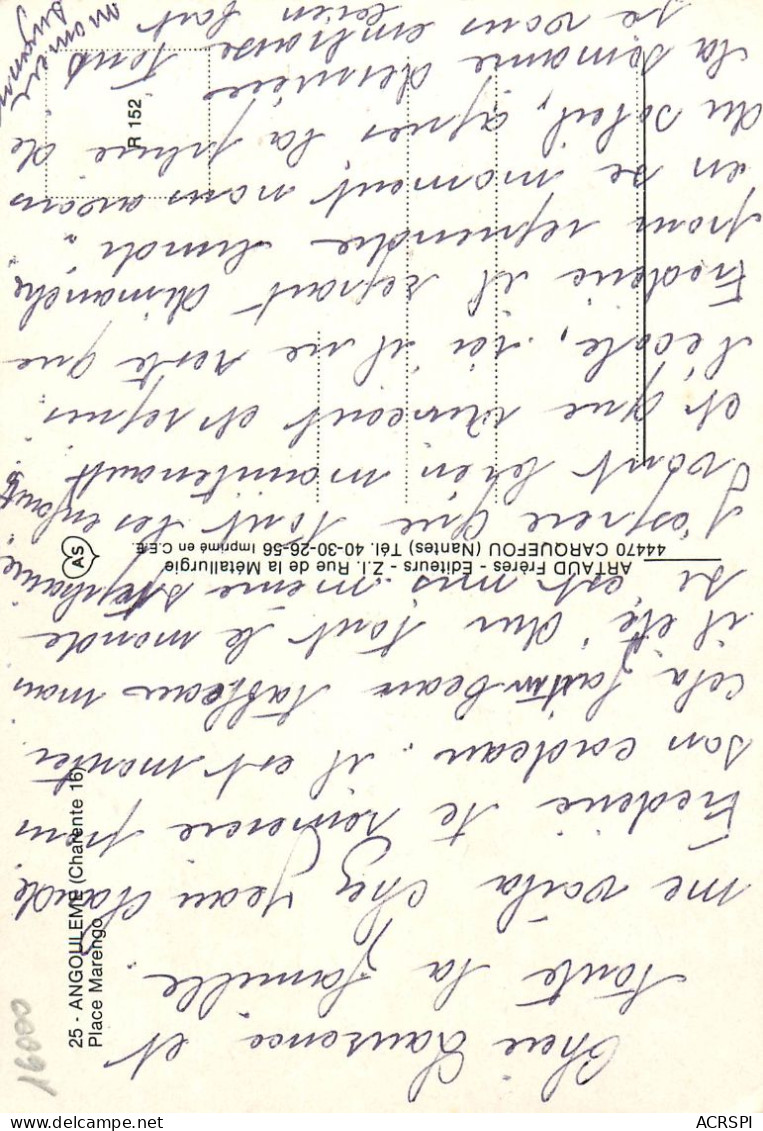 Cheie Laurence et
toute la famille.
me voila chez jean claude
Frederic te remercie pour
son cardeau. il est monter
cela fait beau tableau mon
il ete dur tout le monde
se est mis meme stephanie.
J'espere que tout les enfants
vont bien maintenant
et que vincent et repris
l'ecole, ici il ne reste que
Frederic il repart dimanche
pour reprendre lundi.
en se moment nous avons
du soleil, apres la pluie de
la semaine derniere
je vous embrasse tous
bien fort
mamie
Suzanne
R 152
25 - ANGOULEME (Charente 16)
Place Marengo
AS
ARTAUD Frères - Editeurs - Z.I. Rue de la Métallurgie
44470 CARQUEFOU (Nantes) Tél. 40-30-26-56 Imprimé en C.E.E.
ACRSPI